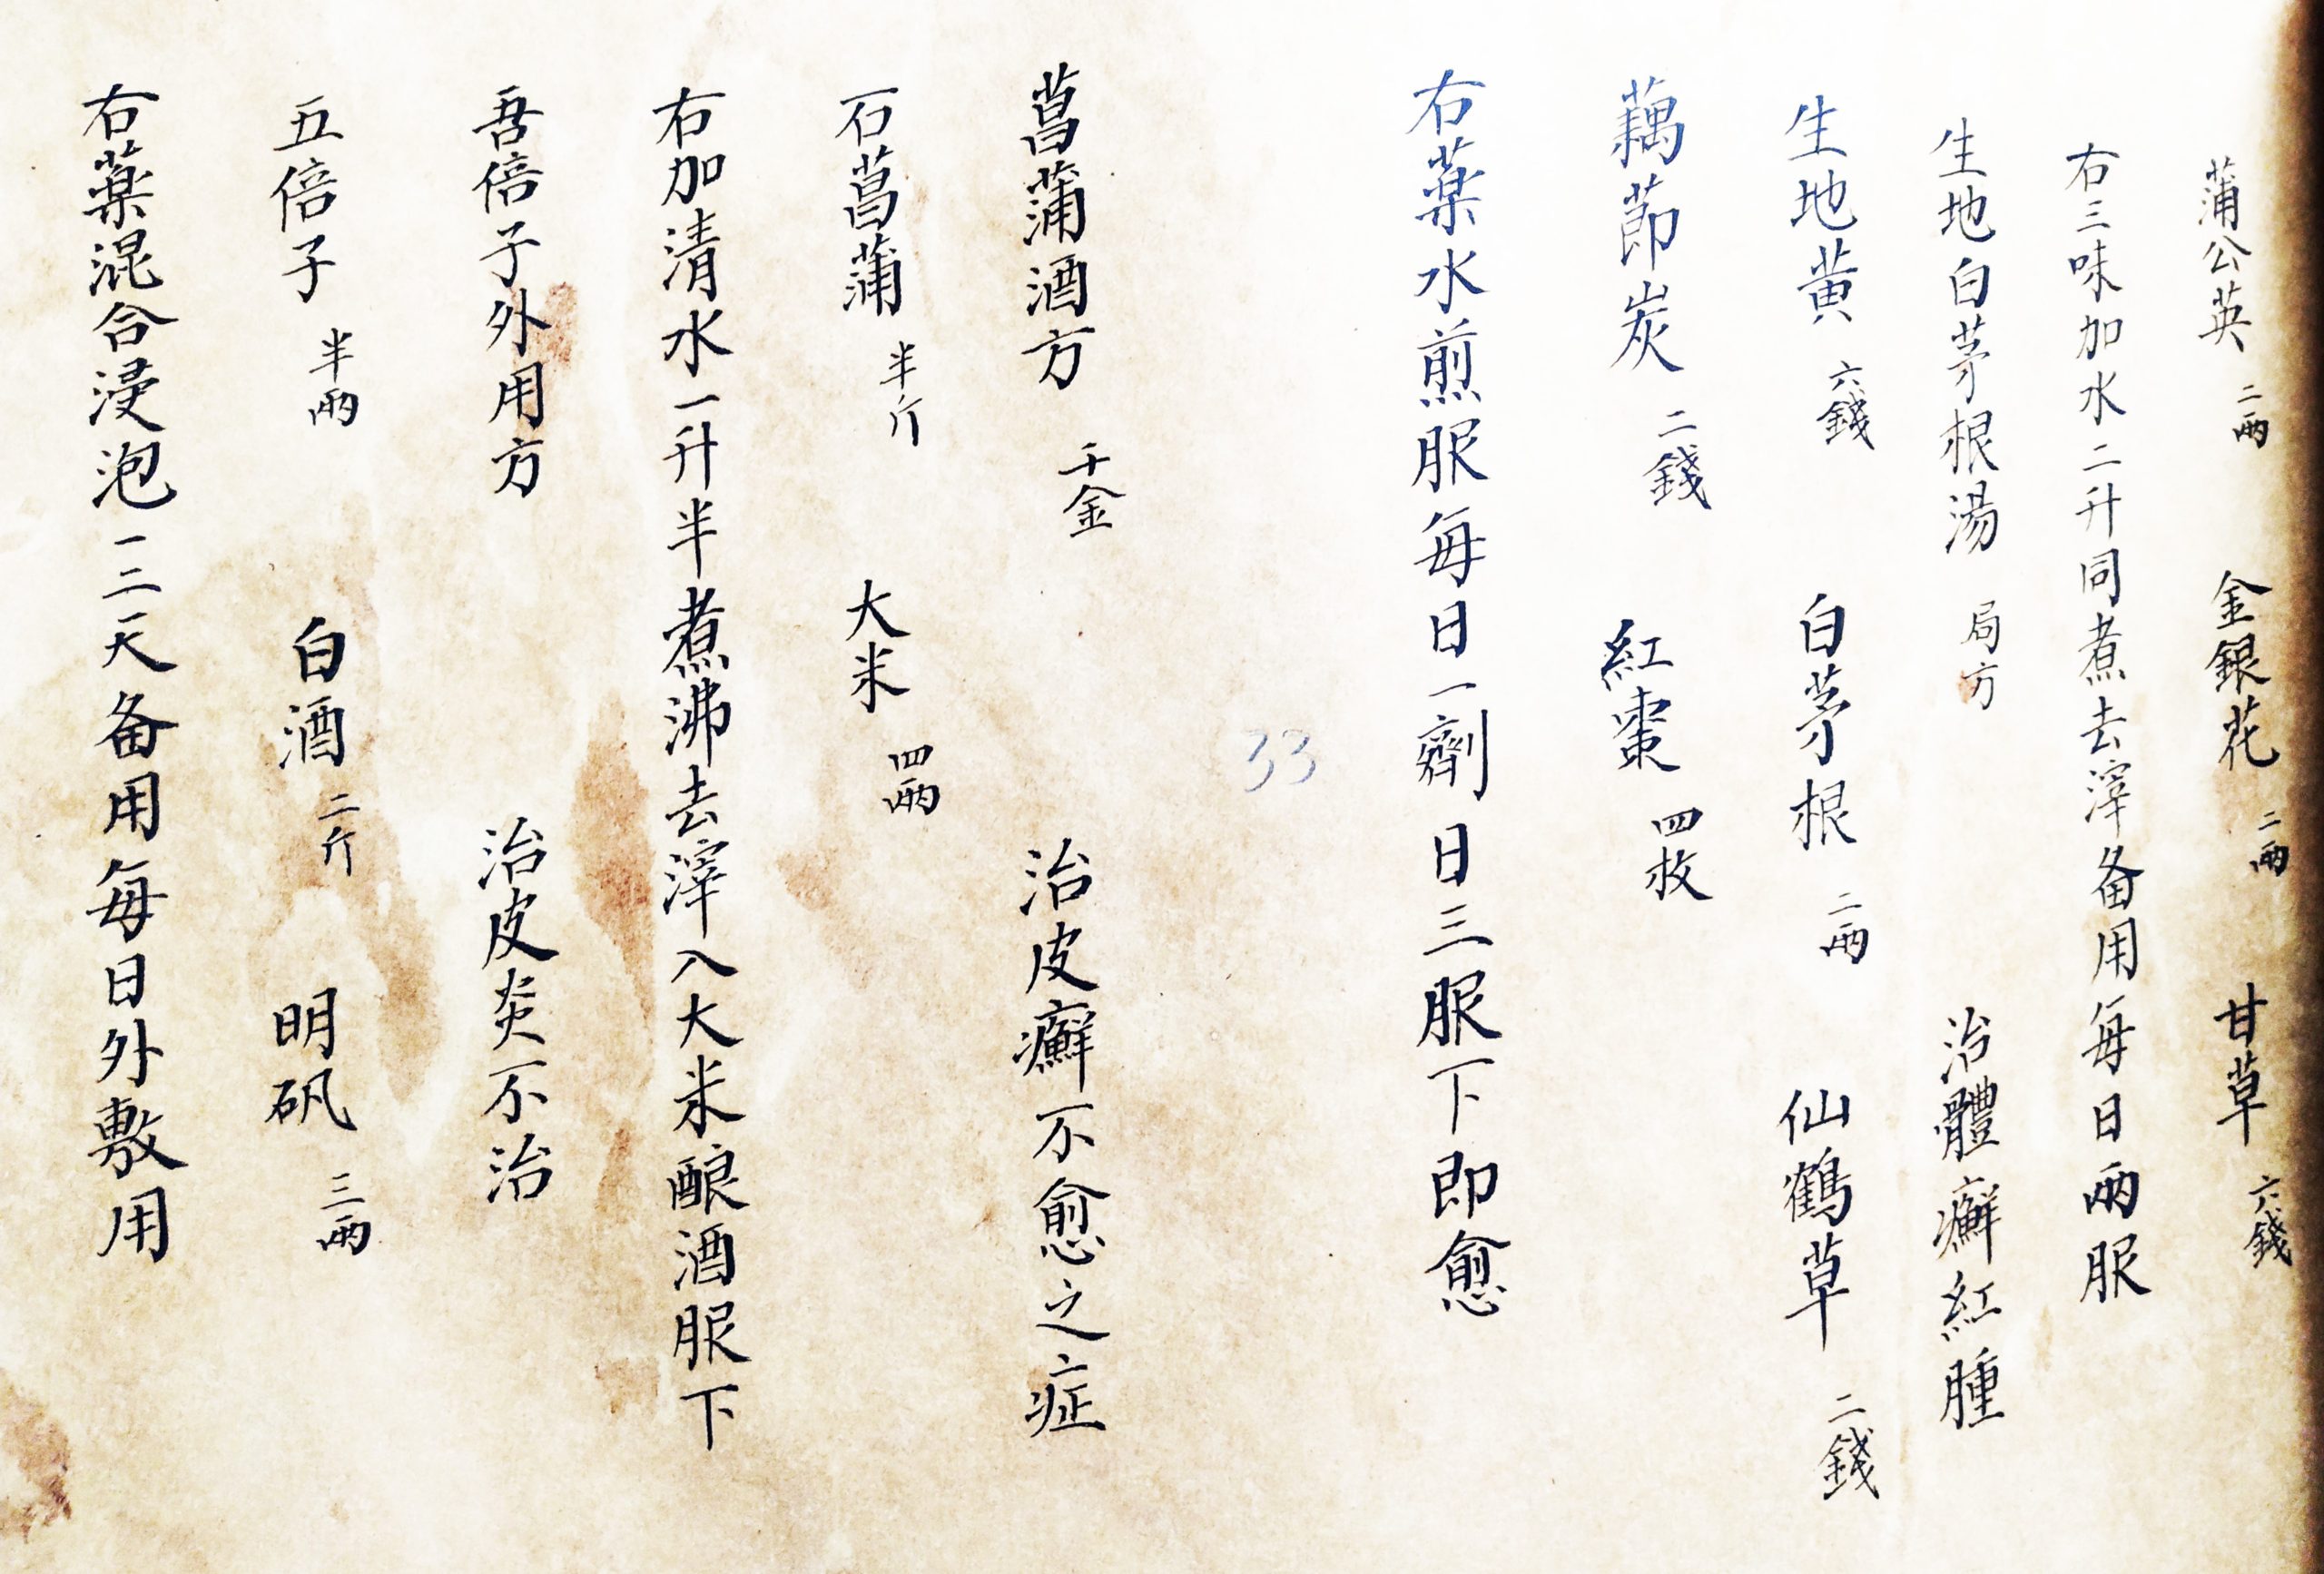 蒲公英 二兩 金銀花 二兩 甘草 六錢
右三味加水二升同煮去滓备用每日兩服
生地白茅根湯 局方 治體癬紅腫
生地黄 六錢 白茅根 二兩 仙鶴草 二錢
藕節炭 二錢 紅棗 四枚
右藥水煎服每日一劑日三服下即愈
33
菖蒲酒方 千金 治皮癬不愈之症
石菖蒲 半斤 大米 四兩
右加清水一升半煮沸去滓入大米酿酒服下
吾倍子外用方 治皮炎不治
五倍子 半兩 白酒 二斤 明矾 三兩
右藥混合浸泡一二天备用每日外敷用